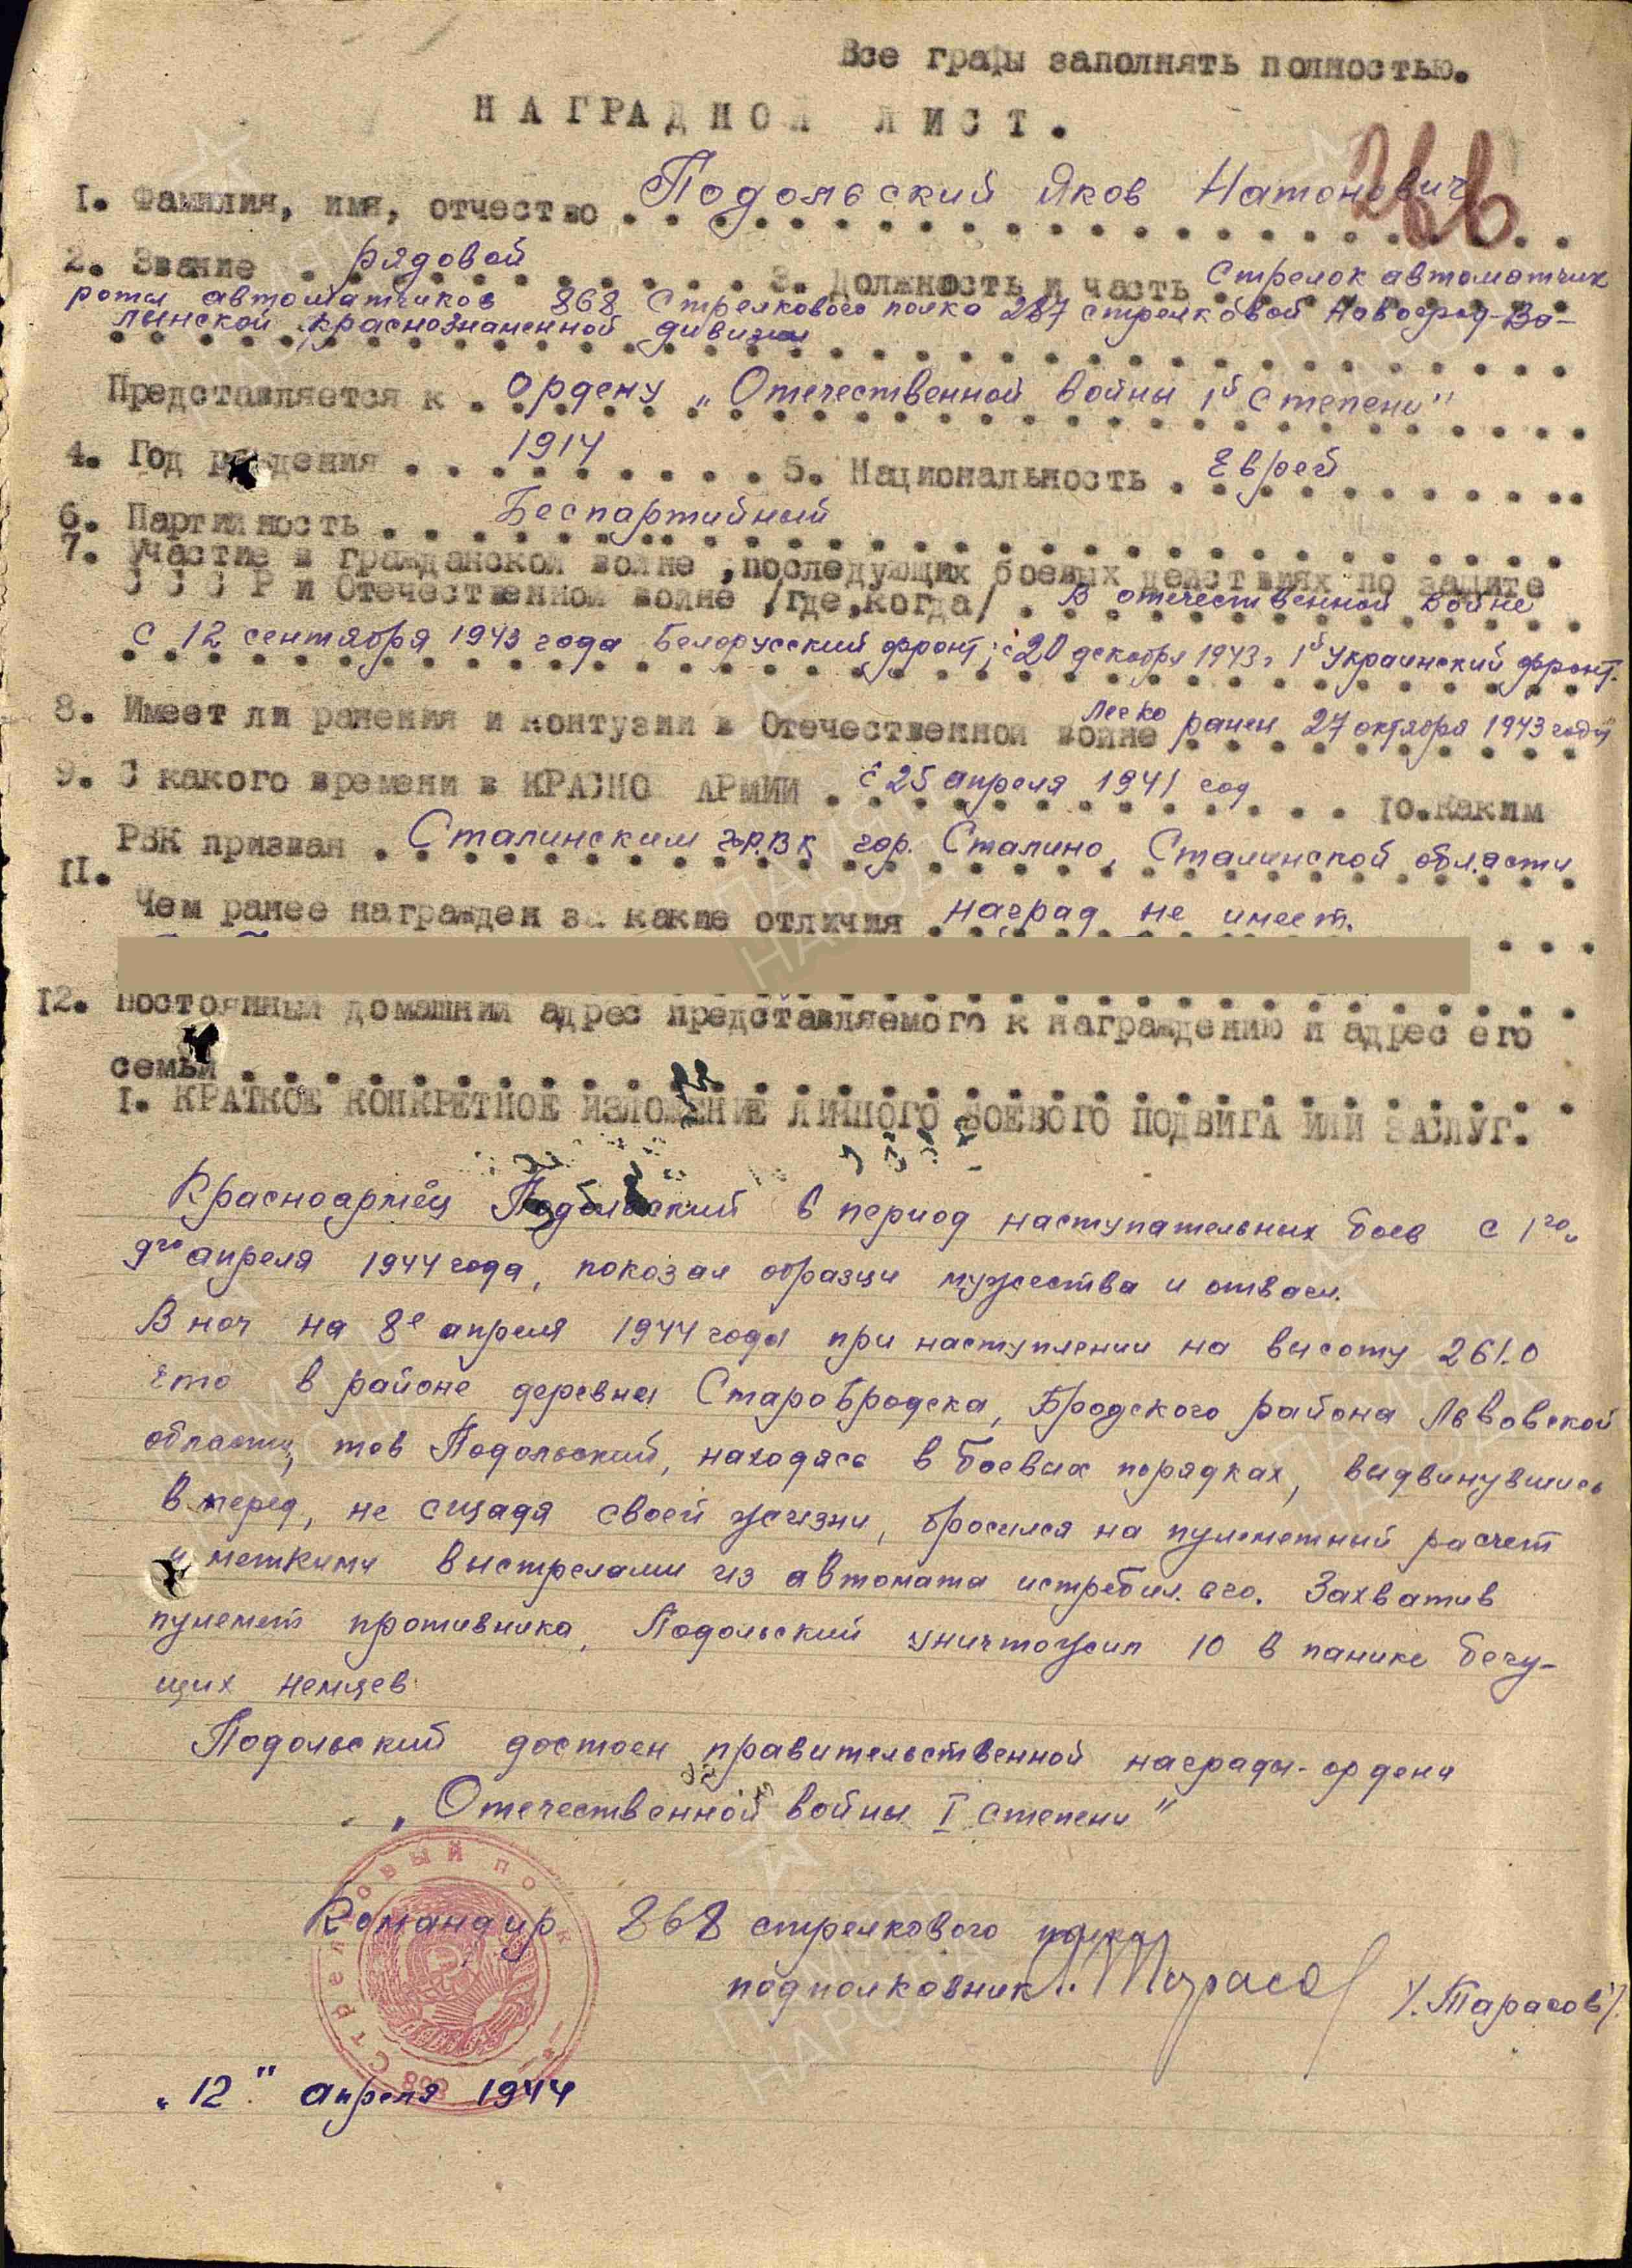 Все графы заполнять полностью.
НАГРАДНОЙ ЛИСТ.
266
1. Фамилия, имя, отчество Подольский Яков Натонович
2. Звание рядовой 3. Должность и часть Стрелок автоматчик
роты автоматчиков 868 Стрелкового полка 287 стрелковой Новоград-Во-
лынской, краснознаменной дивизии
Представляется к ордену „Отечественной войны 1й степени"
4. Год рождения 1914 5. Национальность Еврей
6. Партийность Беспартийный
7. Участие в гражданской войне, последующих боевых действиях по защите
СССР и Отечественной войне /где, когда/ В отечественной войне
с 12 сентября 1943 года Белорусский фронт; с 20 декабря 1943 г 1й Украинский фронт.
8. Имеет ли ранения и контузии в Отечественной войне Легко ранен 27 октября 1943 года
9. С какого времени в КРАСНО АРМИИ с 25 апреля 1941 год 10. Каким
РВК призван Сталинским гор.в к гор. Сталино, Сталинской области
11.
Чем ранее награжден за какие отличия наград не имеет.
12. Постоянный домашний адрес представляемого к награждению и адрес его
семьи
I. КРАТКОЕ КОНКРЕТНОЕ ИЗЛОЖЕНИЕ ЛИЧНОГО БОЕВОГО ПОДВИГА ИЛИ ЗАСЛУГ.
Красноармец Подольский в период наступательных боев с 1го
9го апреля 1944 года, показал образцы мужества и отваги.
В ноч на 8е апреля 1944 года при наступлении на высоту 261.0
что в районе деревны Старобродска, Бродского района Львовской
области, тов Подольский, находясь в боевых порядках, выдвинувшись
в перед, не сщадя своей жизни, бросился на пулеметный расчет
и меткими выстрелами из автомата истребил его. Захватив
пулемет противника, Подольский уничтожил 10 в панике бегу-
щих немцев
Подольский достоен правительственной награды - ордена
„Отечественной войны I степени"
Командир 868 стрелкового полка
подполковник Тарасов /.Тарасов/.
868 Стрелковый полк
„12" апреля 1944
ПАМЯТЬ НАРОДА